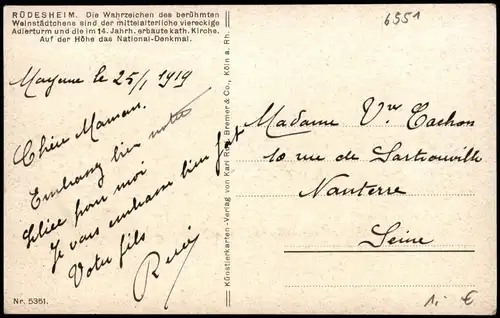 RÜDESHEIM. Die Wahrzeichen des berühmten
Weinstädtchens sind der mittelalterliche viereckige
Adlerturm und die im 14. Jahrh. erbaute kath. Kirche.
Auf der Höhe das National-Denkmal.
6551
Mayence le 25/1 1919
Chère Maman.
Embrasse bien notre
pour moi
Je vous embrasse bien fort
Votre fils
René
Künstlerkarten-Verlag von Karl Rud. Bremer & Co., Köln a. Rh.
Madame Vve Cachon
10 rue de Sartrouville
Nanterre
Seine
Nr. 5351.
1,- €